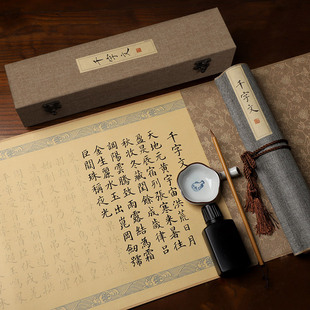 千字文
千字文
千字文
天地元黃宇宙洪荒日月
盈昃辰宿列張寒來暑往
秋收冬藏閏餘成歲律呂
調陽雲騰致雨露結為霜
金生麗水玉出崑岡劍號
巨闕珠稱夜光